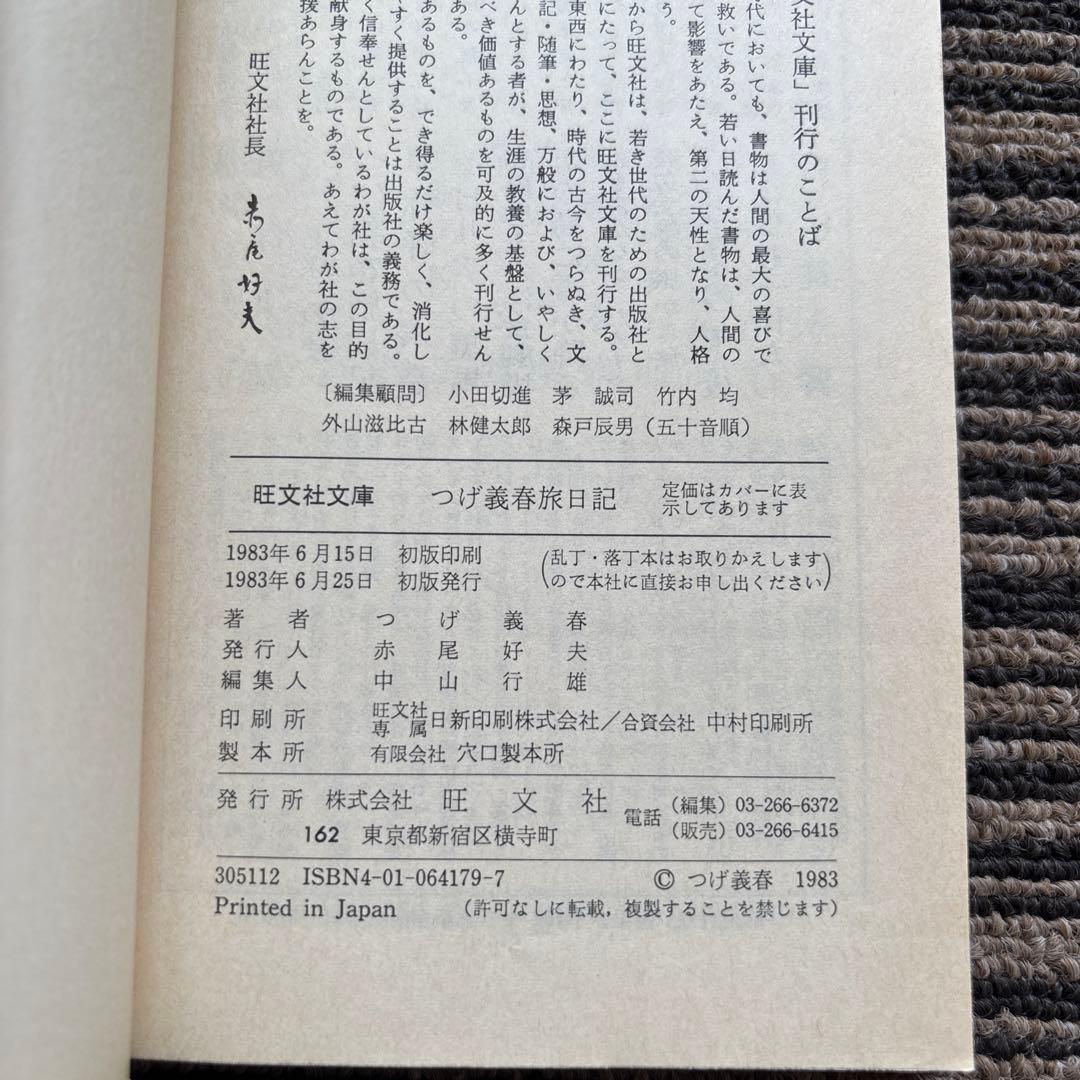 文社文庫」刊行のことば
代においても、書物は人間の最大の喜びで
救いである。若い日読んだ書物は、人間の
て影響をあたえ、第二の天性となり、人格
う。
から旺文社は、若き世代のための出版社と
にたって、ここに旺文社文庫を刊行する。
東西にわたり、時代の古今をつらぬき、文
記・随筆・思想、万般におよび、いやしく
んとする者が、生涯の教養の基盤として、
べき価値あるものを可及的に多く刊行せん
ある。
あるものを、でき得るだけ楽しく、消化し
すく提供することは出版社の義務である。
く信奉せんとしているわが社は、この目的
献身するものである。あえてわが社の志を
援あらんことを。
旺文社社長 赤尾好夫
〔編集顧問〕 小田切進 茅 誠司 竹内 均
外山滋比古 林健太郎 森戸辰男(五十音順)
旺文社文庫 つげ義春旅日記 定価はカバーに表
示してあります
1983年6月15日 初版印刷 (乱丁・落丁本はお取りかえします
1983年6月25日 初版発行 ので本社に直接お申し出ください)
著者 つげ義春
発行人 赤尾好夫
編集人 中山行雄
印刷所 旺文社専属日新印刷株式会社/合資会社 中村印刷所
製本所 有限会社 穴口製本所
発行所 株式会社 旺文社 電話 (編集) 03-266-6372
(販売) 03-266-6415
162 東京都新宿区横寺町
305112 ISBN4-01-064179-7 © つげ義春 1983
Printed in Japan (許可なしに転載,複製することを禁じます)